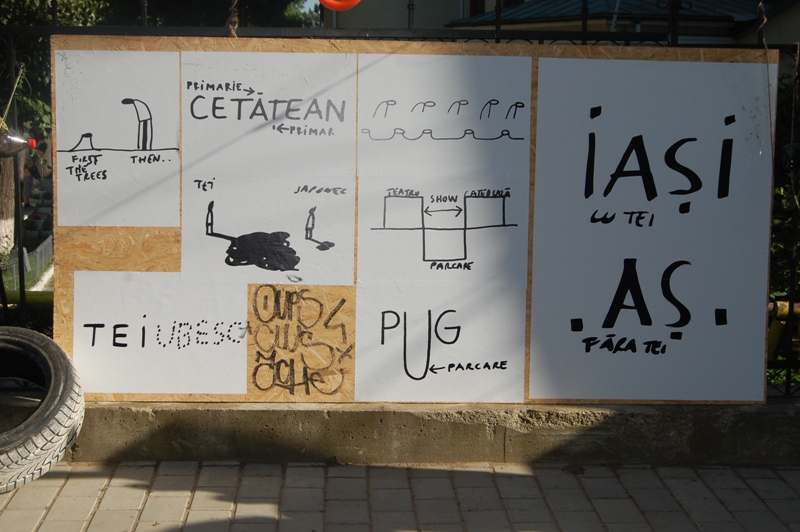 FIRST
THE
TREES
THEN..
PRIMARIE
CETĂȚEAN
PRIMAR
TEI
JAPONEZ
TEATRU
SHOW
CATEDRALĂ
PARCARE
TEIUBESC
PUG
PARCARE
IAȘI
CU TEI
.AȘ.
FĂRĂ TEI